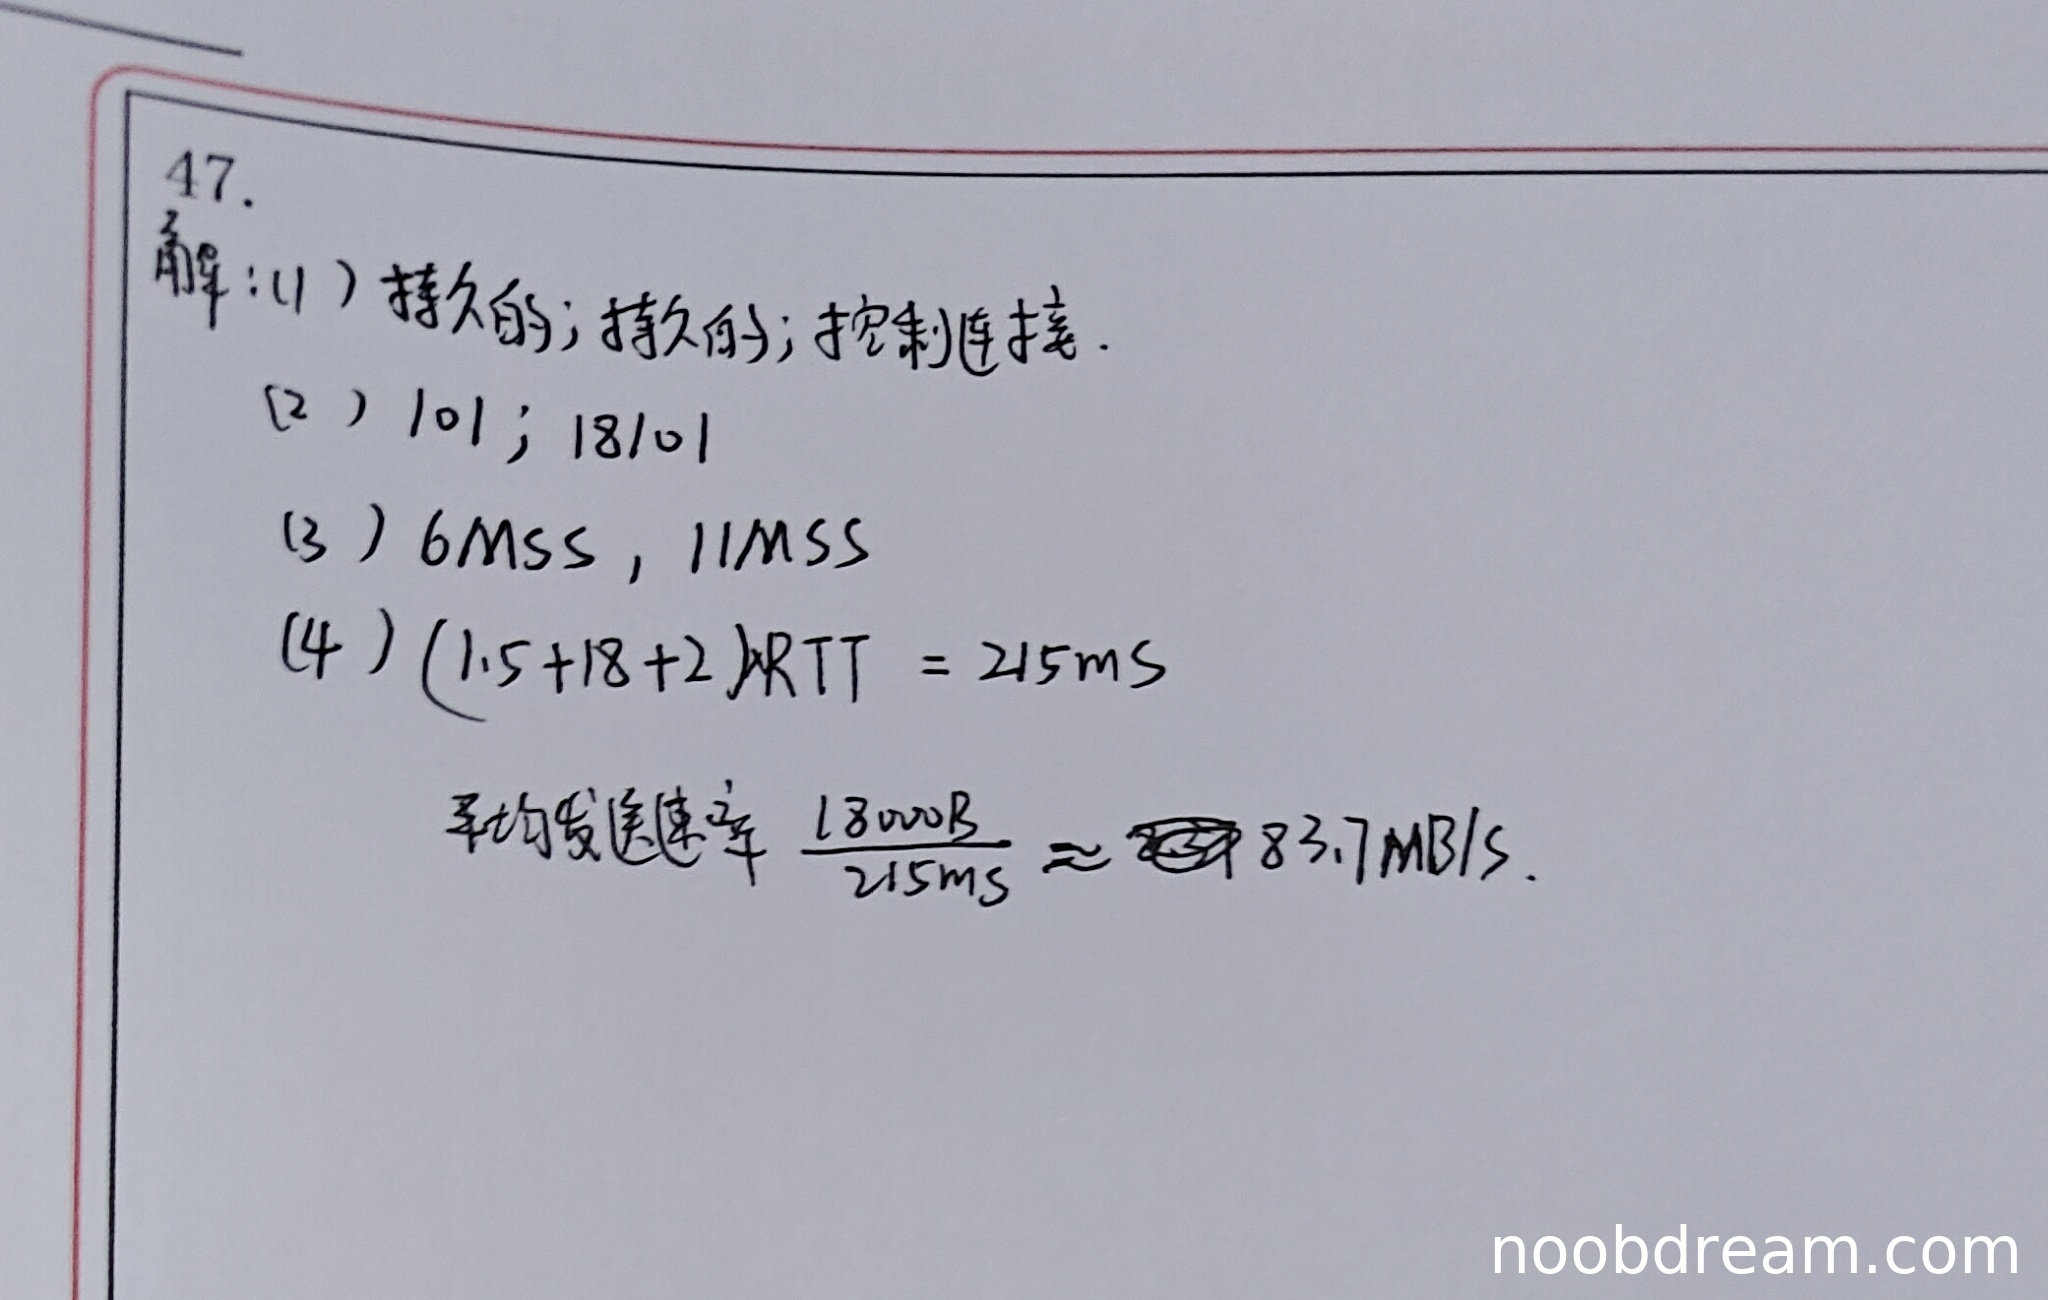 47.
解:(1)持久的;持久的;控制连接.
(2)101;18101
(3)6MSS,11MSS
(4)(1.5+18+2)×RTT = 215ms
平均发送速率 18000B/215ms ≈ 83.7MB/s.
noobdream.com